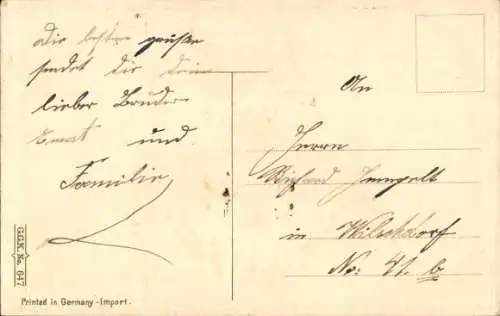 Die besten grüße
sendet dir dein
lieber Bruder
Ernst und
Familie
An
Herrn
Richard Hempelt
in Wilschdorf
No: 41. b
G.G.K. No. 647
Printed in Germany - Import.